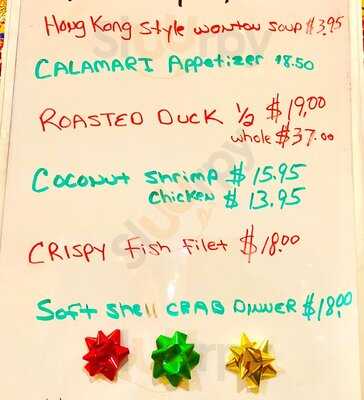 Hong Kong Style wonton soup $3.95
CALAMARI Appetizer $8.50
ROASTED DUCK 1/2 $19.00
whole $37.00
Coconut shrimp $15.95
chicken $13.95
CRISPY fish filet $18.00
Soft shell CRAB DINNER $18.00
sluurpy